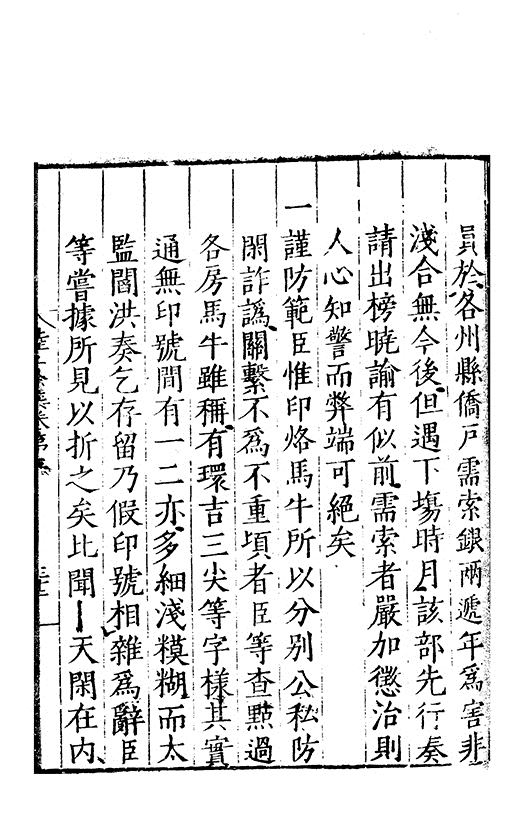 員於各州縣僑戶需索銀兩遞年為害非
淺合無今後但遇下塲時月該部先行奏
請出榜曉諭有似前需索者嚴加懲治則
人心知警而弊端可絕矣
一謹防範臣惟印烙馬牛所以分別公私防
閑詐譌關繫不爲不重頃者臣等查㸃過
各房馬牛雖稱有環吉三尖等字樣其實
通無印號間有一二亦多細淺糢糊而太
監閻洪奏乞存留乃假印號相雜爲辭臣
等嘗據所見以折之矣比聞天閑在内